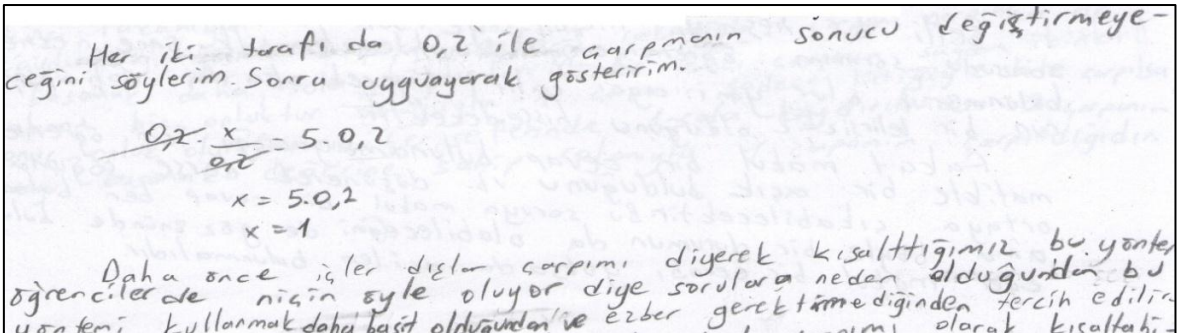 Her iki tarafı da 0,2 ile çarpmanın sonucu değiştirmeye-
ceğini söylerim. Sonra uygulayarak gösteririm.
0,2 x/0,2 = 5.0,2
x = 5.0,2
x = 1
Daha önce içler dışlar çarpımı diyerek kısalttığımız bu yöntem
öğrencilerde niçin öyle oluyor diye sorulara neden olduğundan bu
yöntemi kullanmak daha basit olduğundan ve ezber gerektirmediğinden tercih edilir.
olarak kısaltabi-